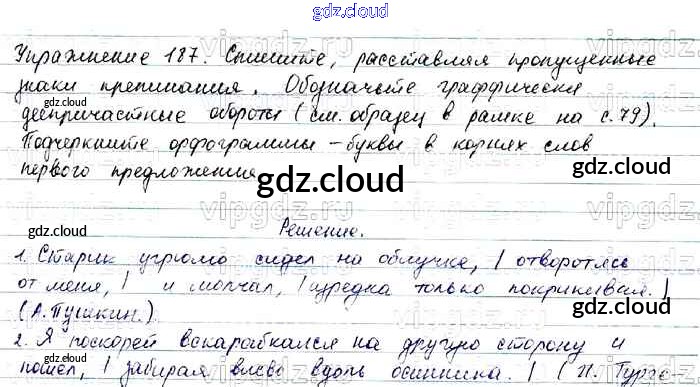 gdz.cloud
Упражнение 187. Спишите, расставляя пропущенные
знаки препинания. Обозначьте графически
деепричастные обороты (см. образец в рамке на с. 79).
Подчеркните орфограммы - буквы в корнях слов
первого предложения.
gdz.cloud
Решение.
1. Старик угрюмо сидел на облучке, | отворотясь
от меня, | и молчал, | изредка только покрикивая. |
(А. Пушкин.)
2. Я поскорей вскарабкался на другую сторону и
пошёл, | забирая влево вдоль осинника. | (И. Турге-